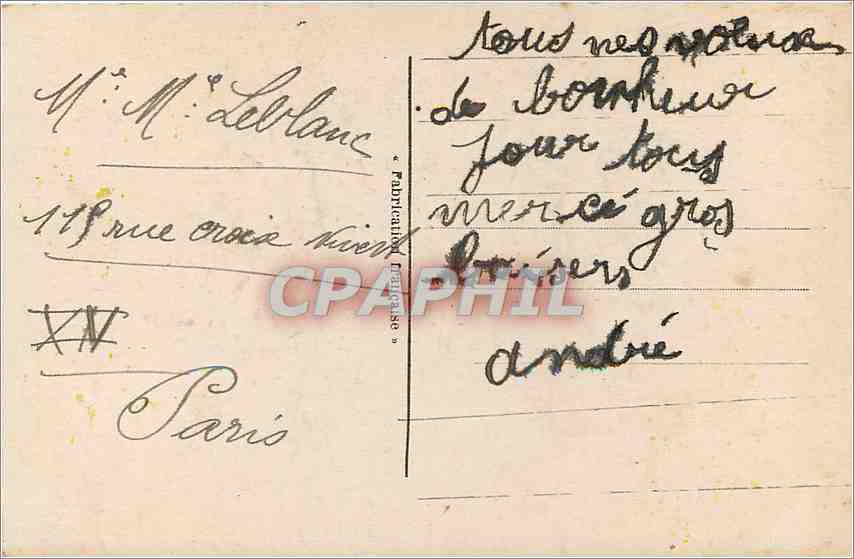 Mr. Me. Leblanc
119 rue croix nivert
XV
Paris
« Fabrication française »
CPAPHIL
tous nes voeux
de bonheur
pour tous
mercé gros
baisers
andré